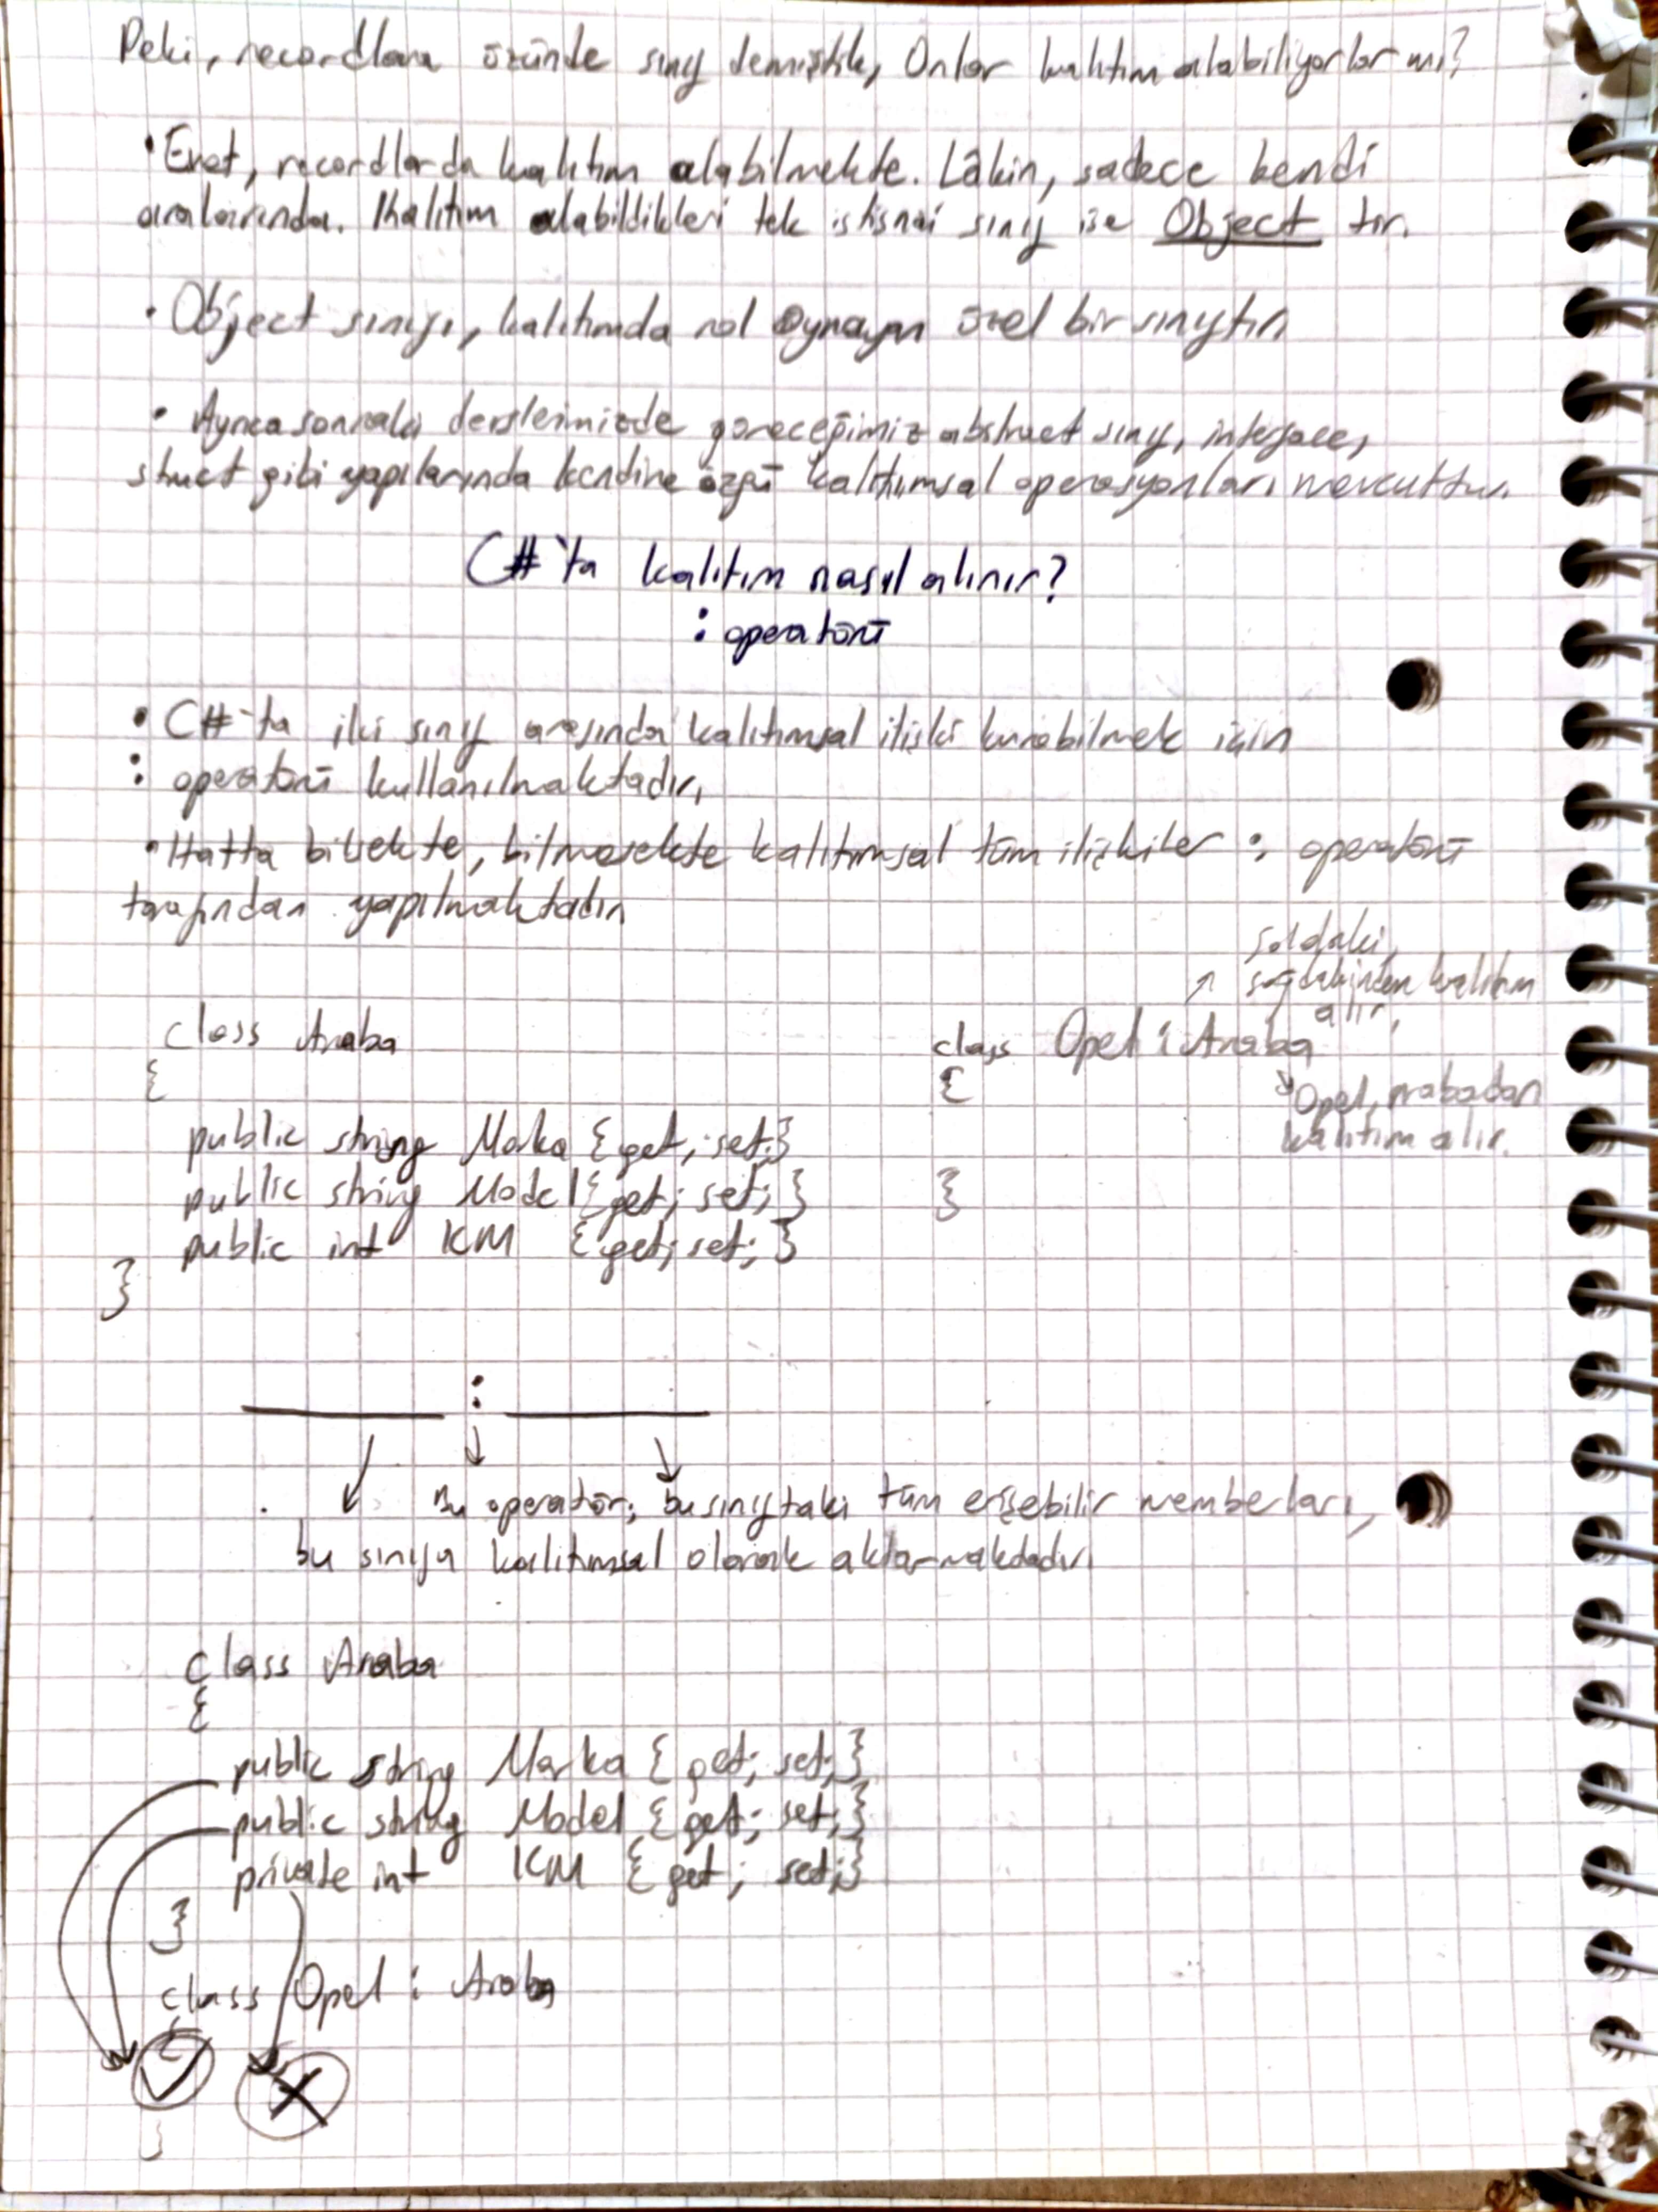 Peki, recordlara özünde sınıf demiştik, Onlar kalıtım alabiliyorlar mı?
• Evet, recordlarda kalıtım alabilmekte. Lâkin, sadece kendi
aralarında. Kalıtım alabildikleri tek istisnai sınıf ise Object tir.
• Object sınıfı, kalıtımda rol oynayan özel bir sınıftır.
• Ayrıca sonraki derslerimizde göreceğimiz abstract sınıf, interface,
struct gibi yapılarında kendine özgü kalıtımsal operasyonları mevcuttur.
C#'ta kalıtım nasıl alınır?
: operatörü
• C#'ta iki sınıf arasında kalıtımsal ilişki kurabilmek için
: operatörü kullanılmaktadır.
• Hatta bilsekte, bilmesekte kalıtımsal tüm ilişkiler : operatörü
tarafından yapılmaktadır.
soldaki,
↗ sağdakinden kalıtım
alır.
class Araba
{
public string Marka {get; set;}
public string Model {get; set; }
public int KM {get; set; }
}
class Opel : Araba
{
↘ Opel, arabadan
kalıtım alır.
}
:
Bu operatör; bu sınıftaki tüm erişebilir memberları,
bu sınıfa kalıtımsal olarak aktarmaktadır.
class Araba
{
public string Marka { get; set; }
public string Model { get; set; }
private int KM { get; set; }
}
class Opel : Araba
{
}